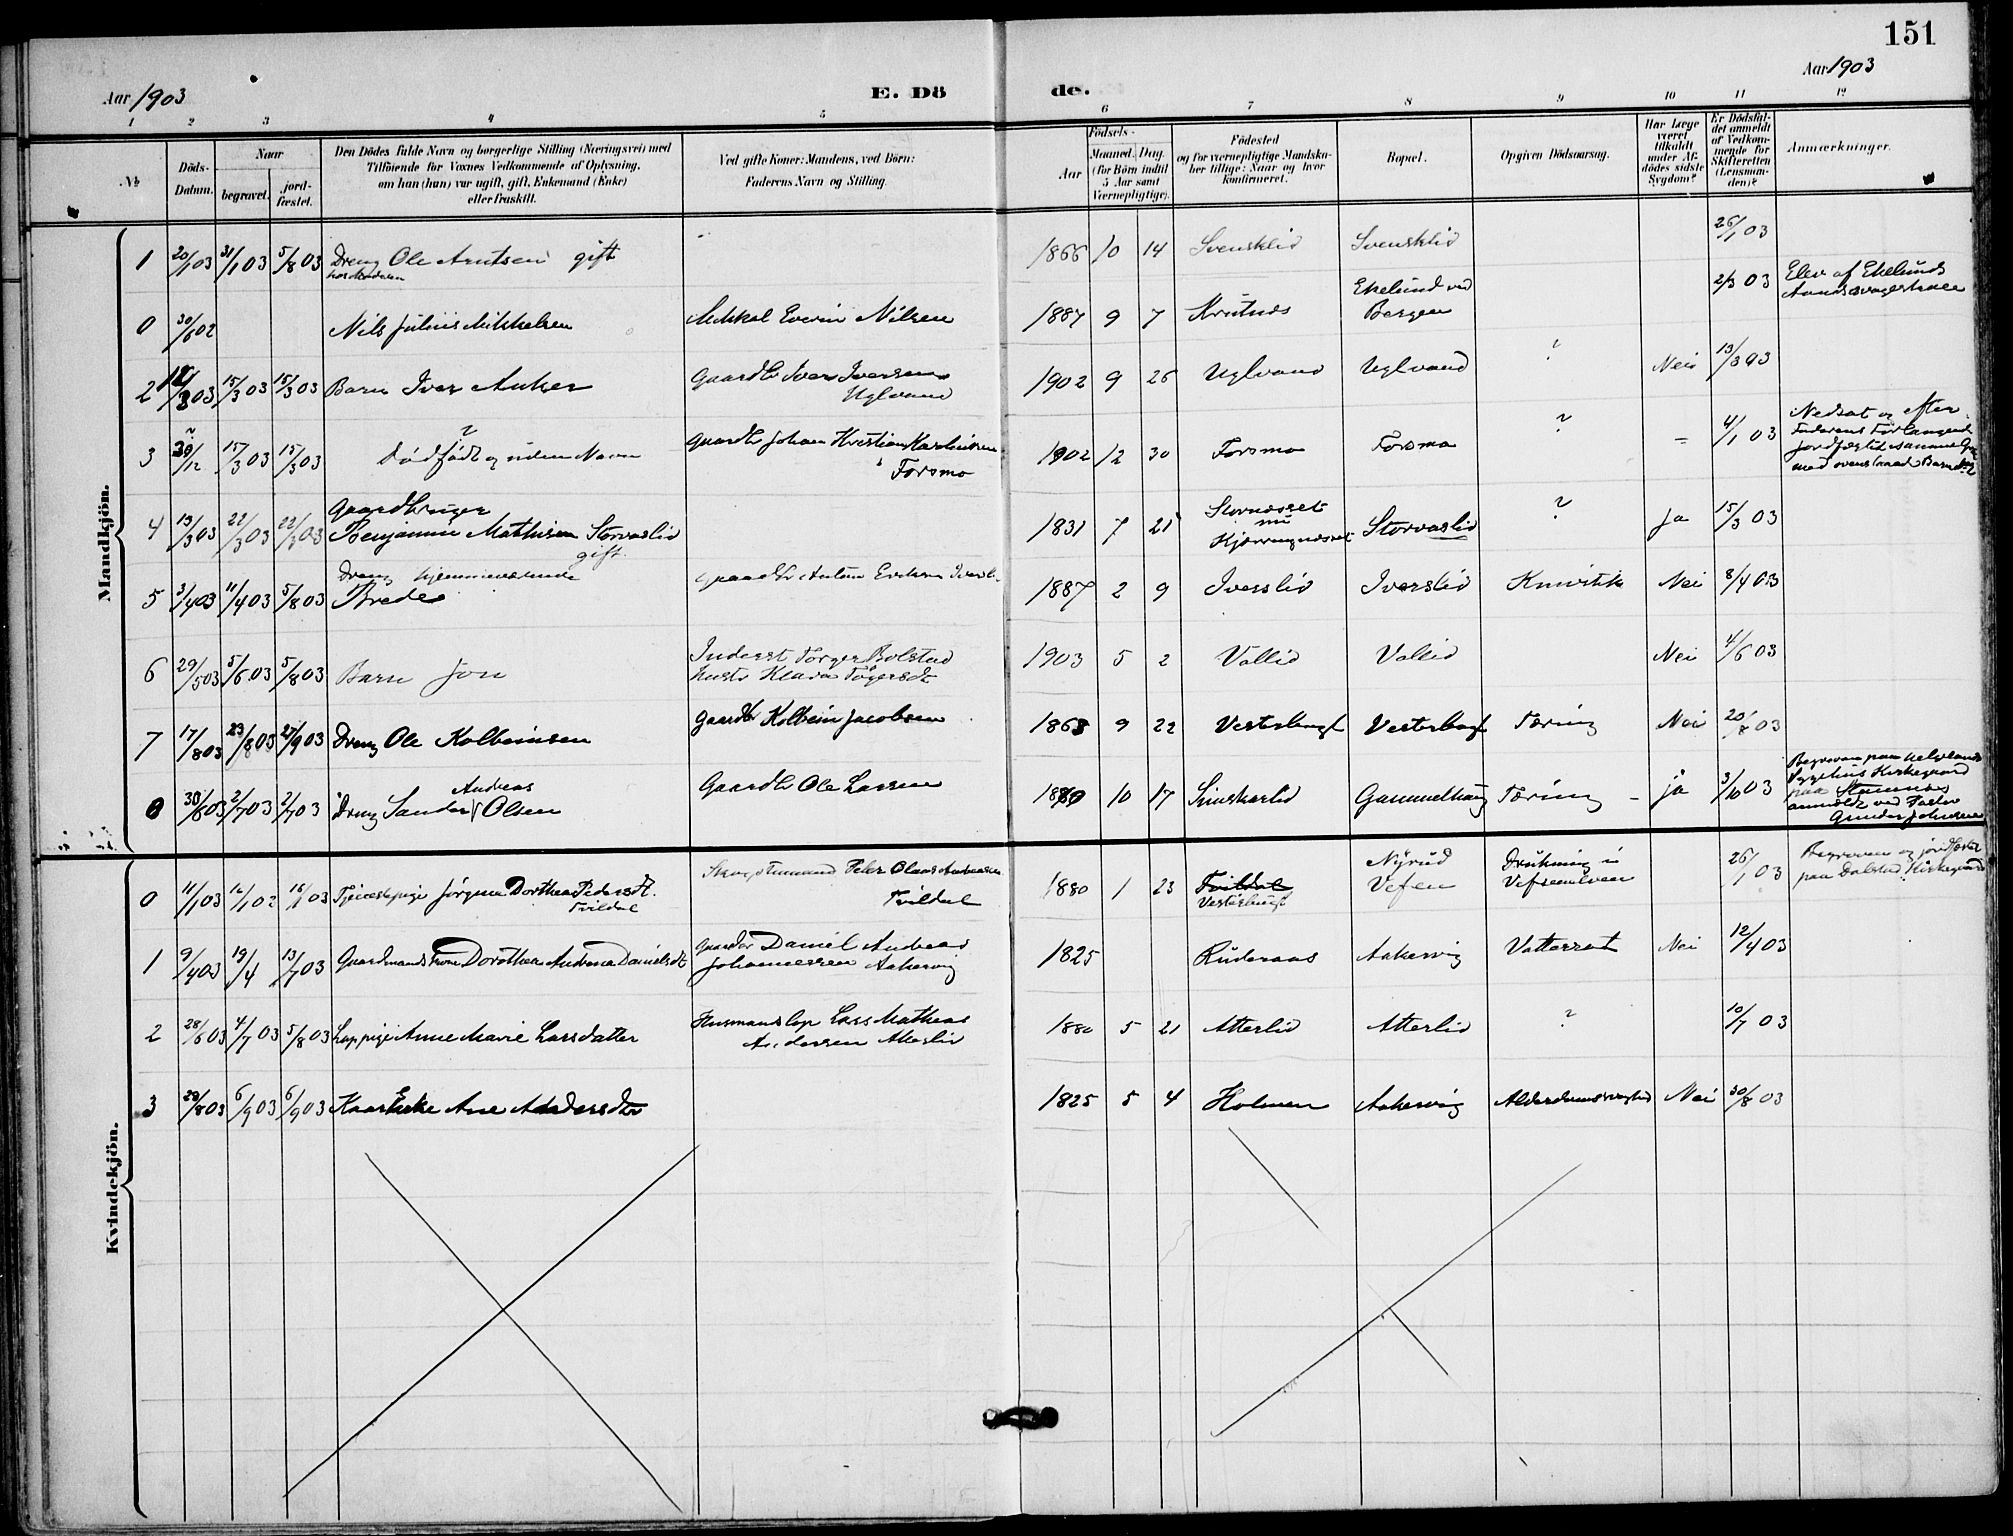 151
Aar 1903
E. Döde.
Aar 1903
1 2 3 4 5 6 7 8 9 10 11 12
№
Döds-Datum.
Naar
begravet.
jord-fæstet.
Den Dödes fulde Navn og borgerlige Stilling (Næringsvei) med
Tilföiende for Voxnes Vedkommende af Oplysning,
om han (hun) var ugift, gift, Enkemand (Enke)
eller fraskilt.
Ved gifte Koner: Mandens, ved Börn:
Faderens Navn og Stilling.
Födsels-
Aar
Maaned. Dag.
(for Börn indtil
5 Aar samt
Værnepligtige).
Födested
og for værnepligtige Mandska-
ber tillige: Naar og hvor
konfirmeret.
Bopæl.
Opgiven Dödsaarsag.
Har Læge
været
tilkaldt
under Af-
dödes sidste
Sygdom?
Er Dödsfal-
det anmeldt
af Vedkom-
mende for
Skifteretten
(Lensman-
den)?
Anmærkninger.
Mandkjön.
1 20/1 03 31/1 03 5/8 03 Dreng Ole Arntsen gift 1866 10 14 Svensklid Svensklid 26/1 03
0 30/6 02 Nils Julius Mikkelsen Mikkal Evein Nilsen 1887 9 7 Krutnes Ekelund ved Bergen 2/3 03 Elev af Ekelunds
2 15/3 03 15/3 03 Barn Iver Anker Gaardbr Iver Iversen Uglvand 1902 9 26 Uglvand Uglvand ? Nei 13/3 03
3 30/12 15/3 03 15/3 03 ? Dödfödt og uden Navn Gaardbr Johan Kristian Karolinsen Forsmo 1902 12 30 Forsmo Forsmo ? - 4/1 03 Nedsat og efter
Faderens Forlangende
med ovenstaaende
4 13/3 03 22/3 03 22/3 03 Gaardbruger
Benjamin Mathisen Storvaslid gift 1831 7 21 Stornæsset
nu
Kjærringnæsset Storvaslid ? Ja 15/3 03
5 3/4 03 11/4 03 5/8 03 Dreng hjemmeværende
Brede Gaardbr Anton Eriksen 1887 2 9 Iverslid Iverslid Knivstik Nei 8/4 03
6 29/5 03 5/6 03 5/8 03 Barn Jon Inderst Torger Bolstad
Hustr Klara 1903 5 2 Vallid Vallid Nei 4/6 03
7 17/8 03 23/8 03 27/9 03 Dreng Ole Kolbeinsen Gaardbr Kolbein Jacobsen 1868 9 22 Vesterbugt Vesterbugt Tæring Nei 20/8 03
0 30/8 03 2/7 03 2/7 03 Dreng Sander Andreas Olsen Gaardbr Ole Larsen 1880 10 17 Simskarlid Gammelhaug Tæring - ja 3/10 03 Begraven paa Helgelands
Sygehus Kirkegaard
paa
anmeldt ved Fader
Kvindekjön.
0 11/1 03 16/1 02 16/1 03 Tjenestepige Jörgine Dorthea Pedersdt. Tvildal Peter Olaus Andreassen
Tvildal 1880 1 23 Tvildal
Vesterbugt Nyrud
Vefsen Drukning i
Vefsenelven 26/1 03 Begraven og jordfæstet
paa Dolstad Kirkegaard
1 9/4 03 19/4 13/7 03 Gaardmandskone Dorothea Andrine Danielsdt Gaardbr Daniel Andreas
Johannessen Aakervig 1825 Rüderaas Aakervig Vattersot Nei 12/4 03
2 28/6 03 4/7 03 5/8 03 Lappige Anne Marie Larsdatter Husmand Lap Lars Mathias
Andersen Atterlid 1880 5 21 Atterlid Atterlid ? 10/7 03
3 29/8 03 6/9 03 6/9 03 Ane Andersdtr 1825 5 4 Holmen Aakervig Alderdomssvaghed Nei 30/8 03